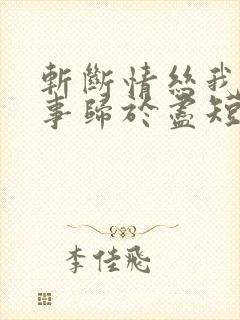 斬斷情絲我
事歸於盡短
李佳飛